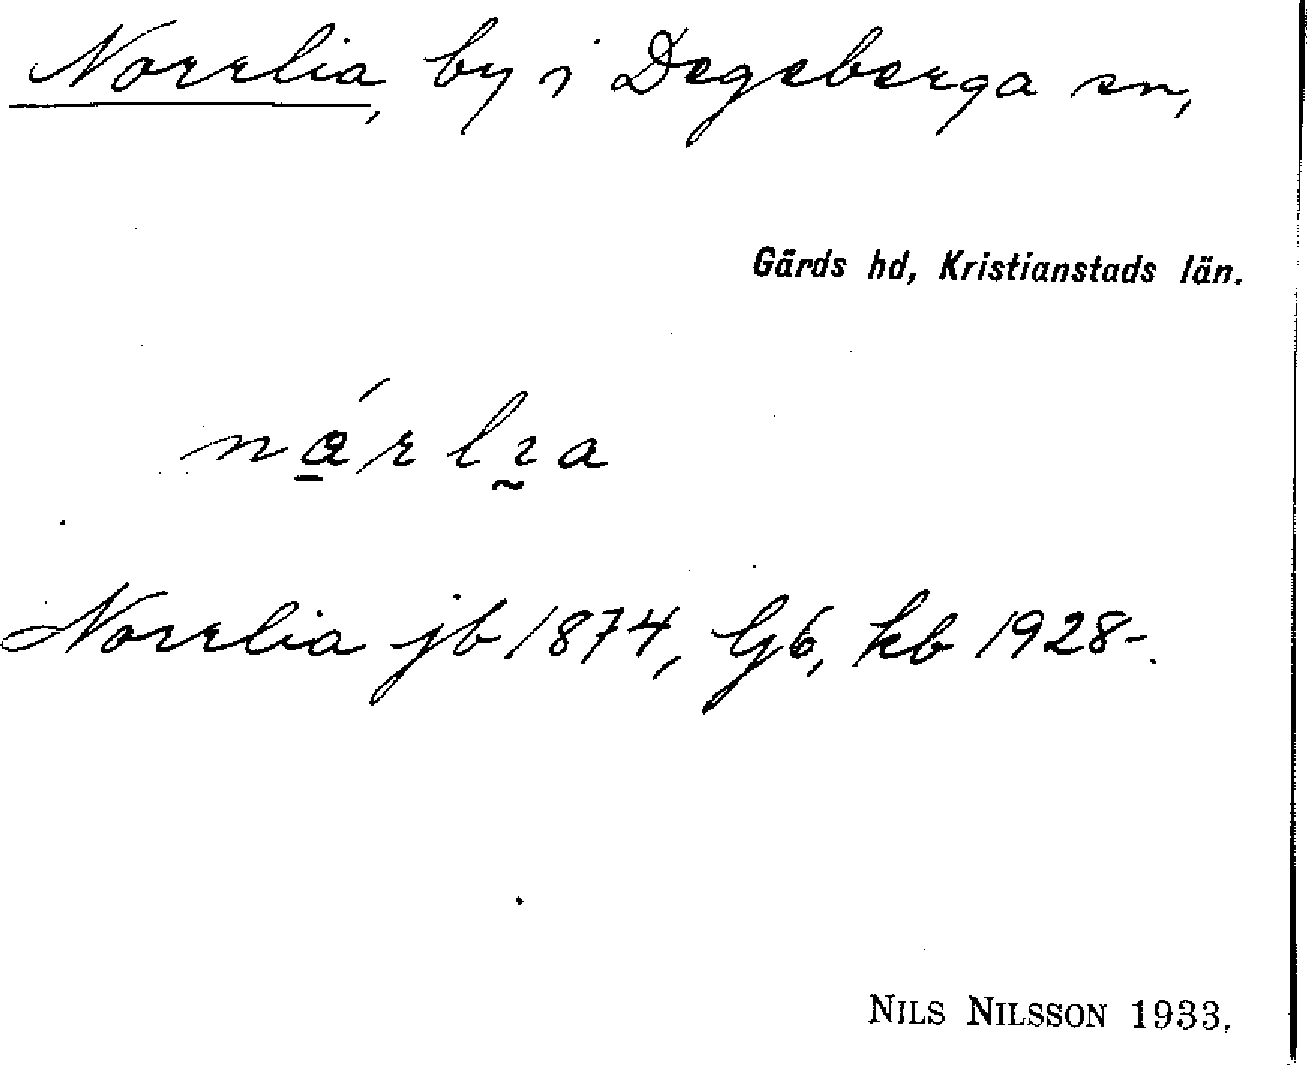 Norrlia, by i Degeberga sn,
Gärds hd, Kristianstads län.
nárlıa
Norrlia jb 1874, Gb, kb 1928-.
NILS NILSSON 1933.